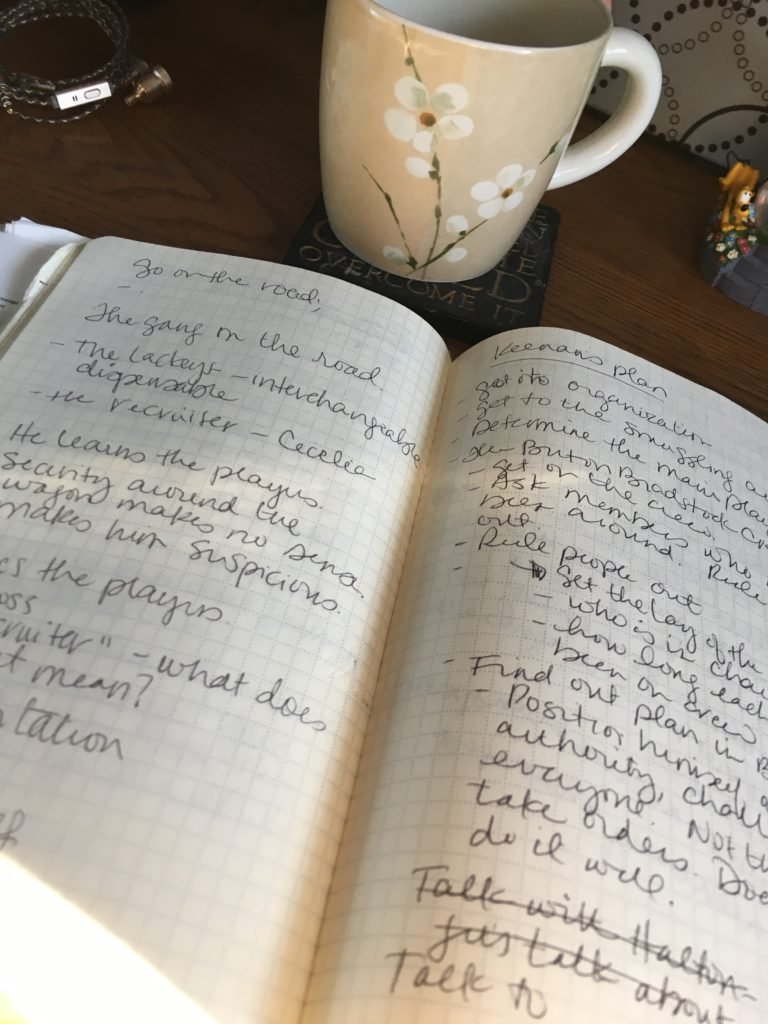 OVERCOME IT
Go on the road;
The gang on the road.
- The Lackeys - interchangeable
dispensable
- The recruiter - Cecelia
He learns the players.
Security around the
wagon makes no sense.
makes him suspicious.
the players.
" - what does
mean?
Keenan's plan
- get into organization
- get to the smuggling
- Determine the main
Burton Bradstock
- get on the crew.
- Ask members who
been around. Rule
out
- Rule people out
- Get the lay of the
- who is in
- how long each
been on crew
- Find out plan in
- Position himself
authority,
everyone. Not
take orders.
do it well.
Talk with Halton -
talk about
Talk to